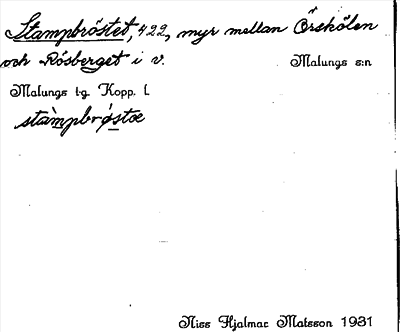 Stampbröstet, 422, myr mellan Örskölen
och Rösberget i v. Malungs s:n
Malungs tg. Kopp. l.
stàmpbrǿstæ
Niss Hjalmar Matsson 1931